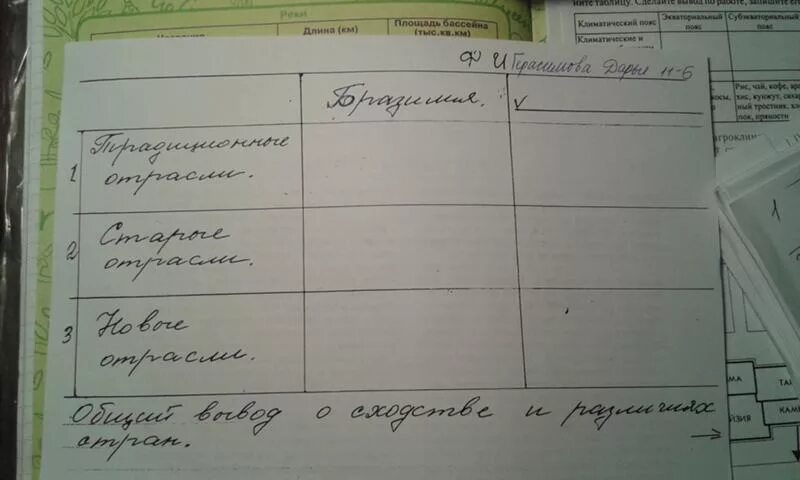 Реки
Длина (км)
Площадь бассейна
(тыс.кв.км)
ните таблицу. Сделайте вывод по работе, запишите его
Климатический пояс
Экваториальный
пояс
Субэкваториальный
пояс
Климатические и
Рис, чай, кофе, ара
хис, кунжут, сахар
ный тростник, хло
пок, пряности
Ф И Герасимова Дарья 11-Б
Бразилия.
v
1 Традиционные
отрасли.
2 Старые
отрасли.
3 Новые
отрасли.
Общий вывод о сходстве и различиях
стран.
1